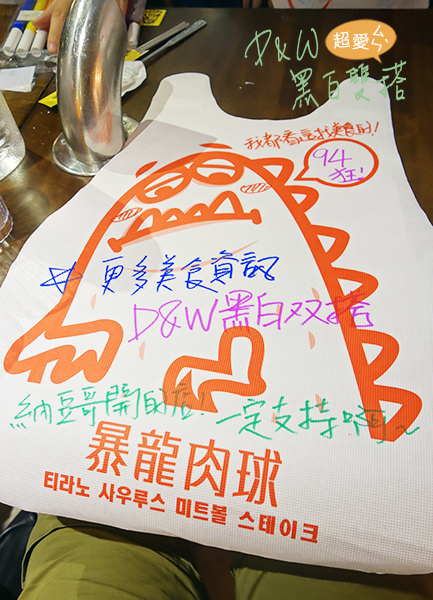 D&W
超愛ㄙ
黑白雙搭
我都看這找餐的!
94
狂!
更多美食資訊
D&W黑白双搭
納豆哥開的店! 一定支持啊~
暴龍肉球
티라노 사우루스 미트볼 스테이크